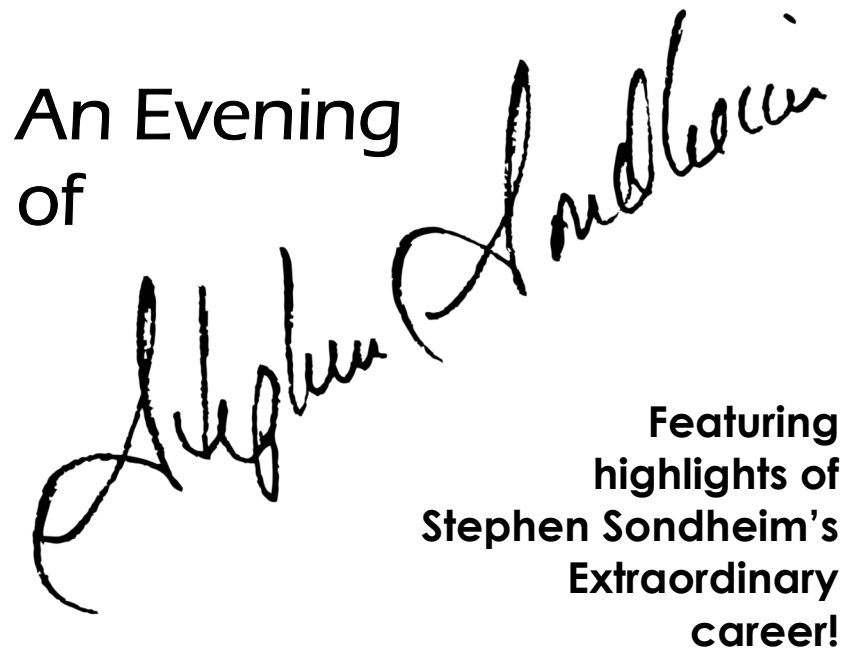 An Evening
of
Stephen Sondheim
Featuring
highlights of
Stephen Sondheim’s
Extraordinary
career!